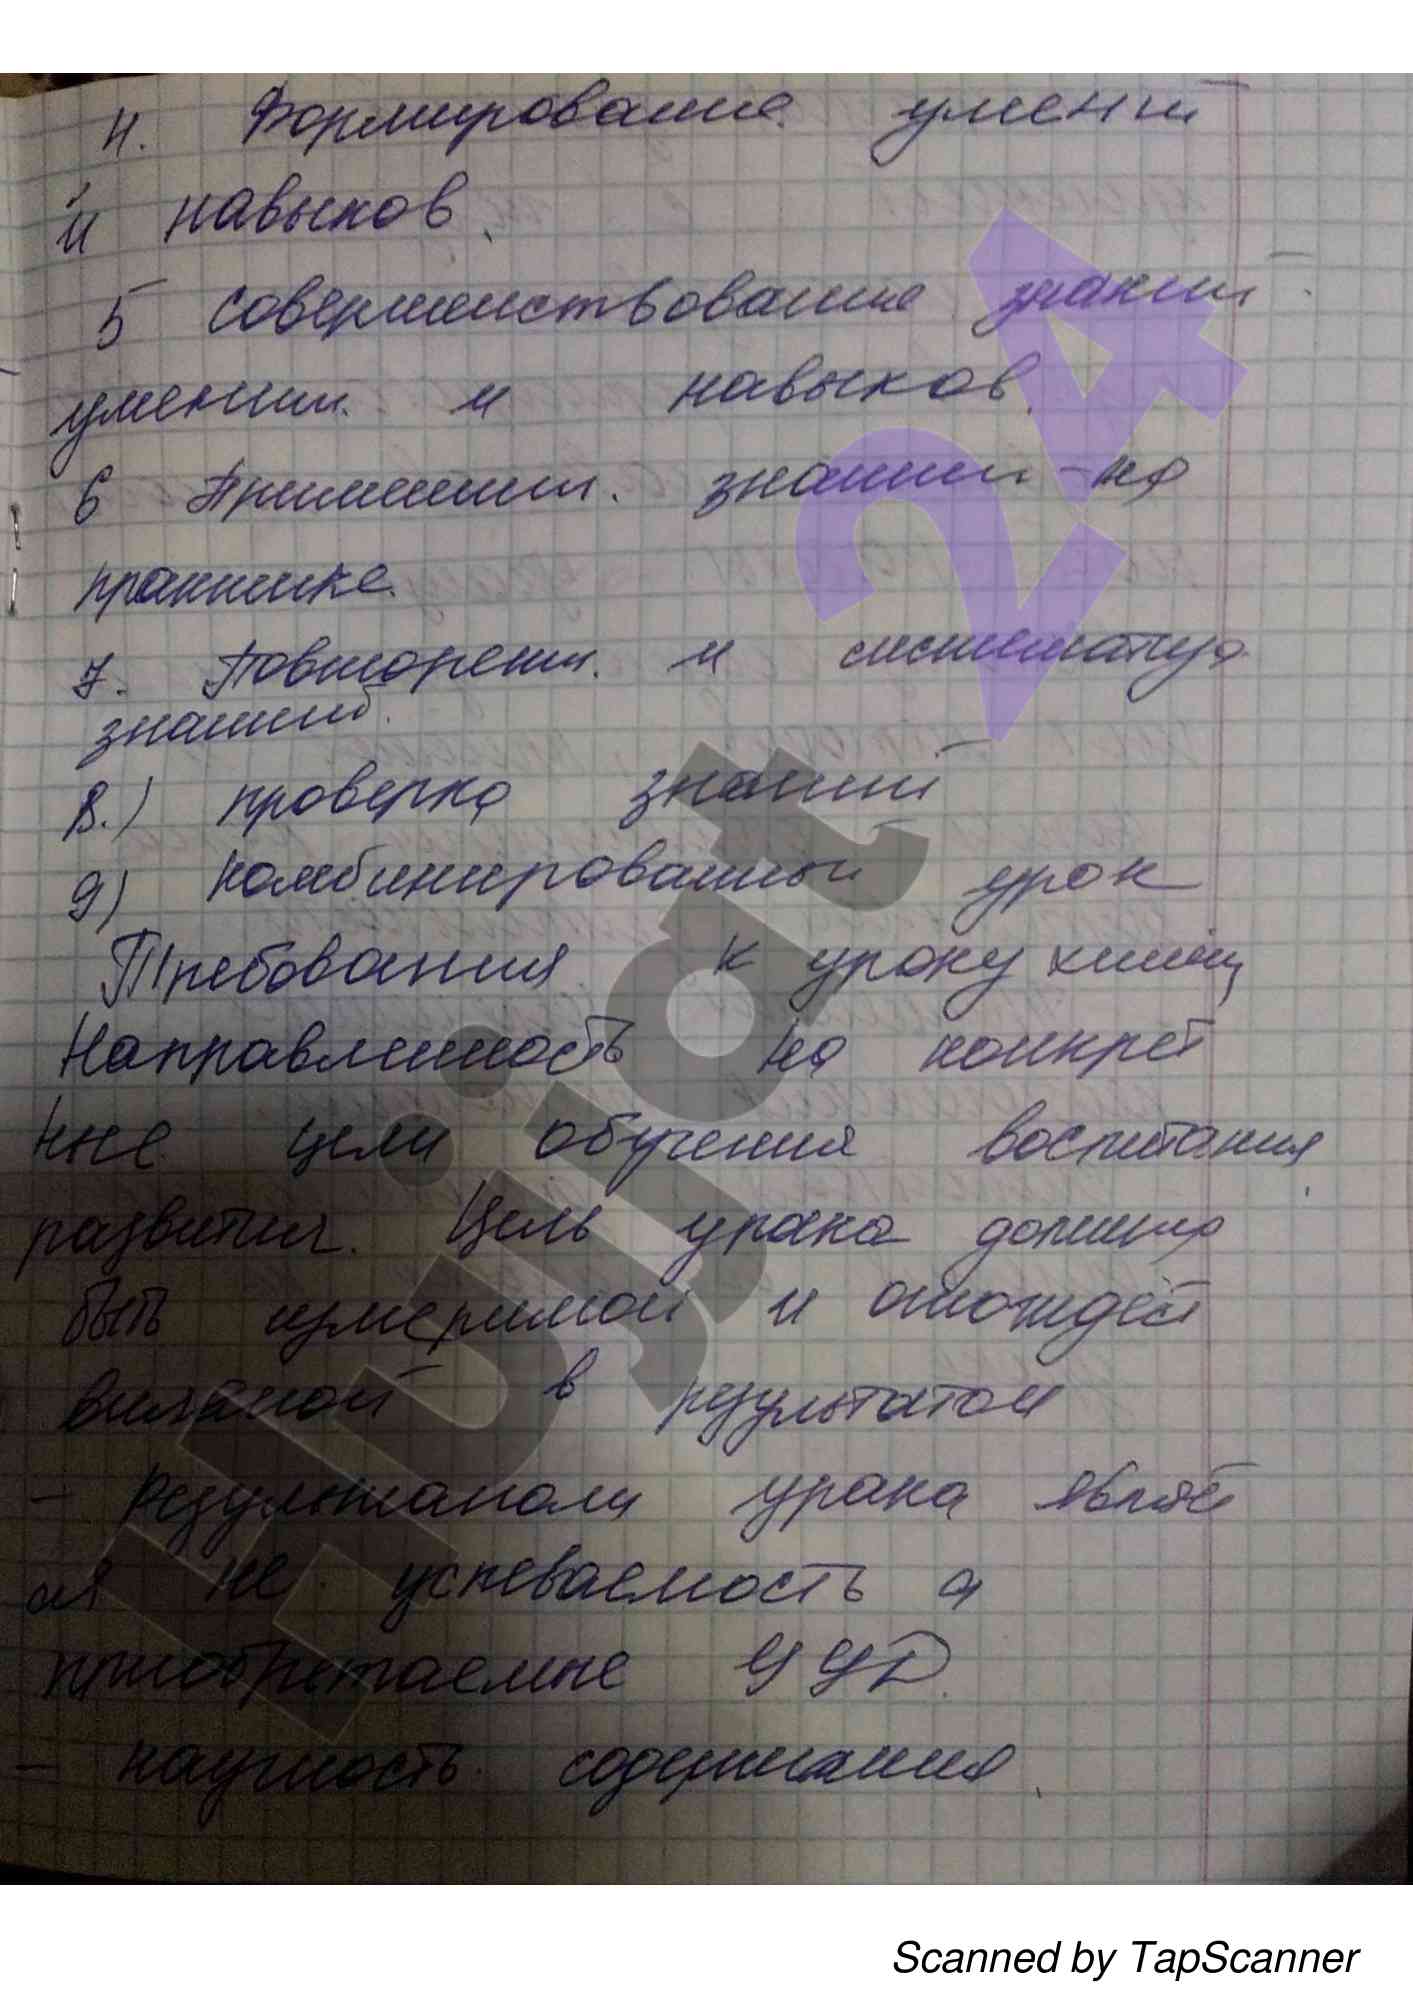 4. Формирование умений
и навыков.
5 Совершенствование знаний
умении и навыков.
6 Применении. знании на
практике.
7. Повторении. и систематиза
знаний.
8.) проверка знаний
9) комбинированный урок
Требования к уроку химии
Направленность на конкрет
ные цели обучения воспитания
развития. Цель урока должна
быть измеримой и отождест
в результатом
- Результатом урока являет
ся не успеваемость а
приобретаемые УУД.
- научность содержания.
Hujjat 24
Scanned by TapScanner